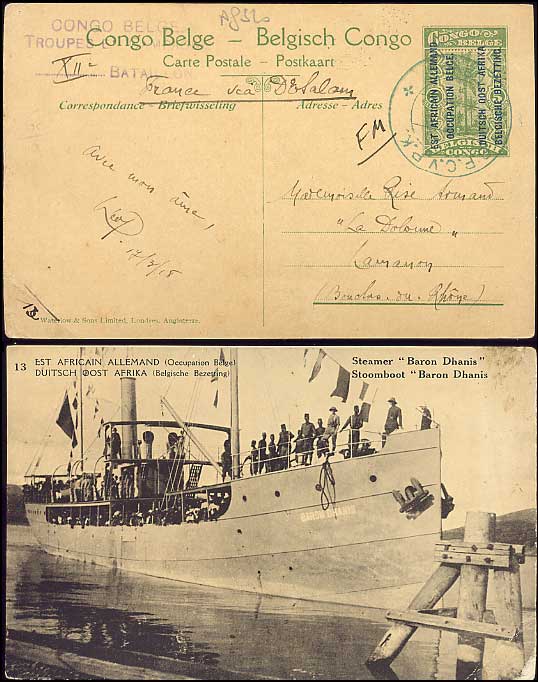 A8526
CONGO BELGE
TROUPES
XIIe
BATAILLON
Congo Belge – Belgisch Congo
Carte Postale – Postkaart
France via D'Salam
Correspondance - Briefwisseling
Adresse - Adres
CONGO BELGE
EST AFRICAIN ALLEMAND
OCCUPATION BELGE
DUITSCH OOST AFRIKA
BELGISCHE BEZETTING
BELGISCH CONGO
B.P.C.V.P.K.
FM
Avec mon âme,
Léo
17/3/18
Mademoiselle Rise Armand
"La Dolonne"
Lamanon
(Bouches-du-Rhône)
13
Waterlow & Sons Limited, Londres, Angleterre.
13 EST AFRICAIN ALLEMAND (Occupation Belge)
DUITSCH OOST AFRIKA (Belgische Bezetting)
Steamer "Baron Dhanis"
Stoomboot "Baron Dhanis
BARON DHANIS